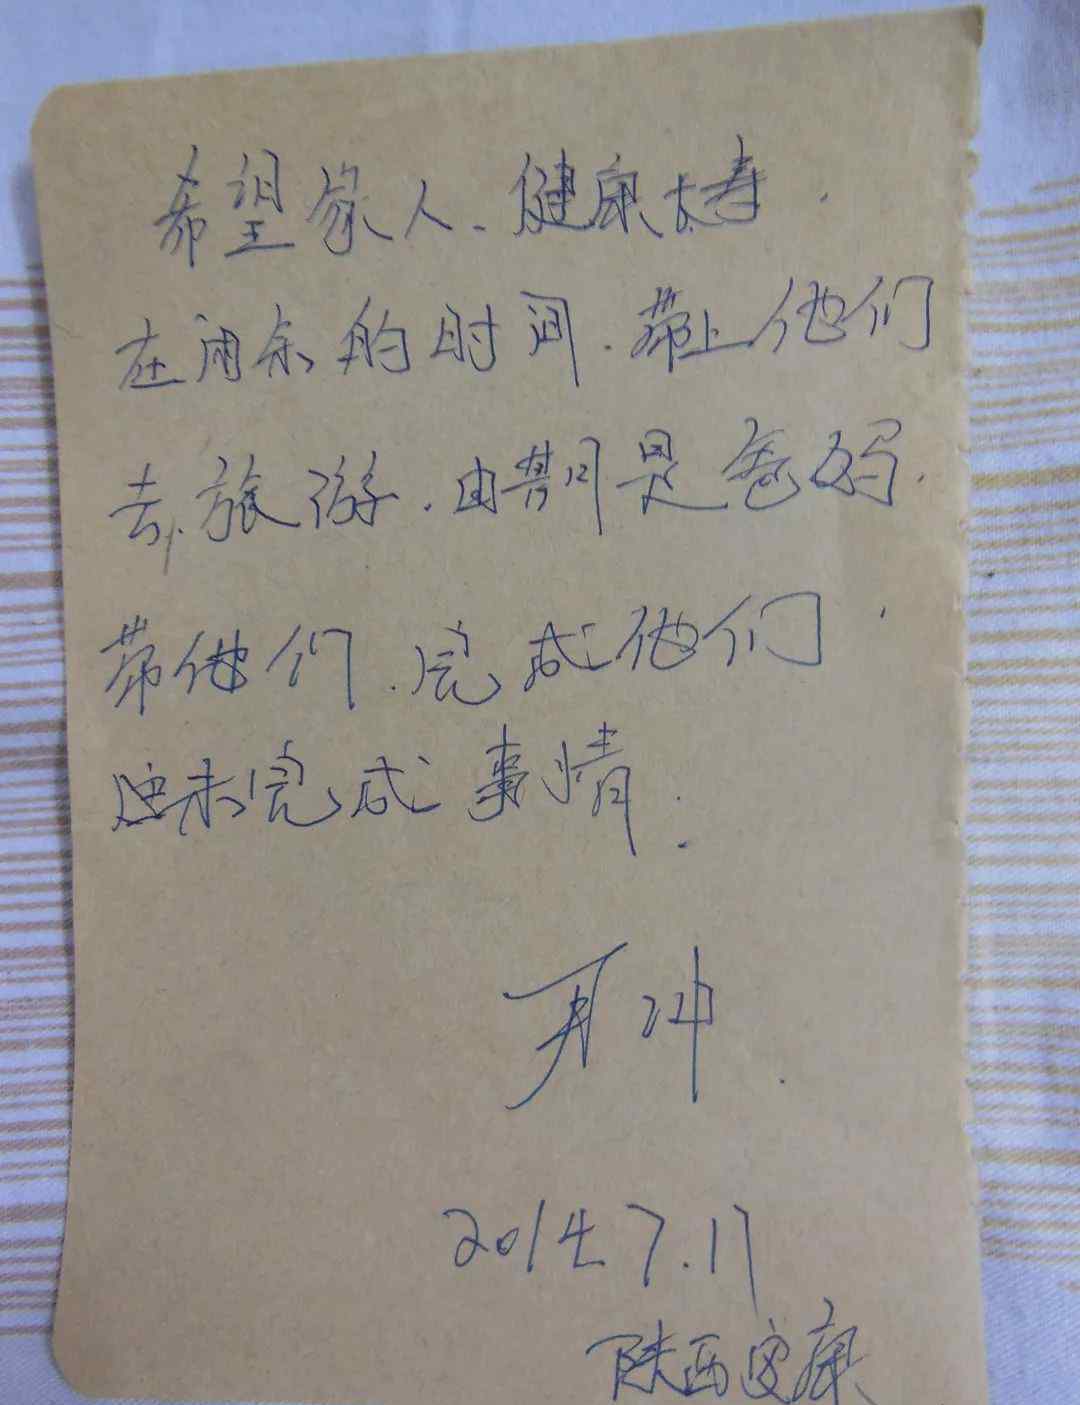 希望家人.健康长寿.
在闲余的时间.带上他们
去旅游.由其是爸妈.
带他们.完成他们
还未完成事情.
冲.
2014.7.17
陕西安康